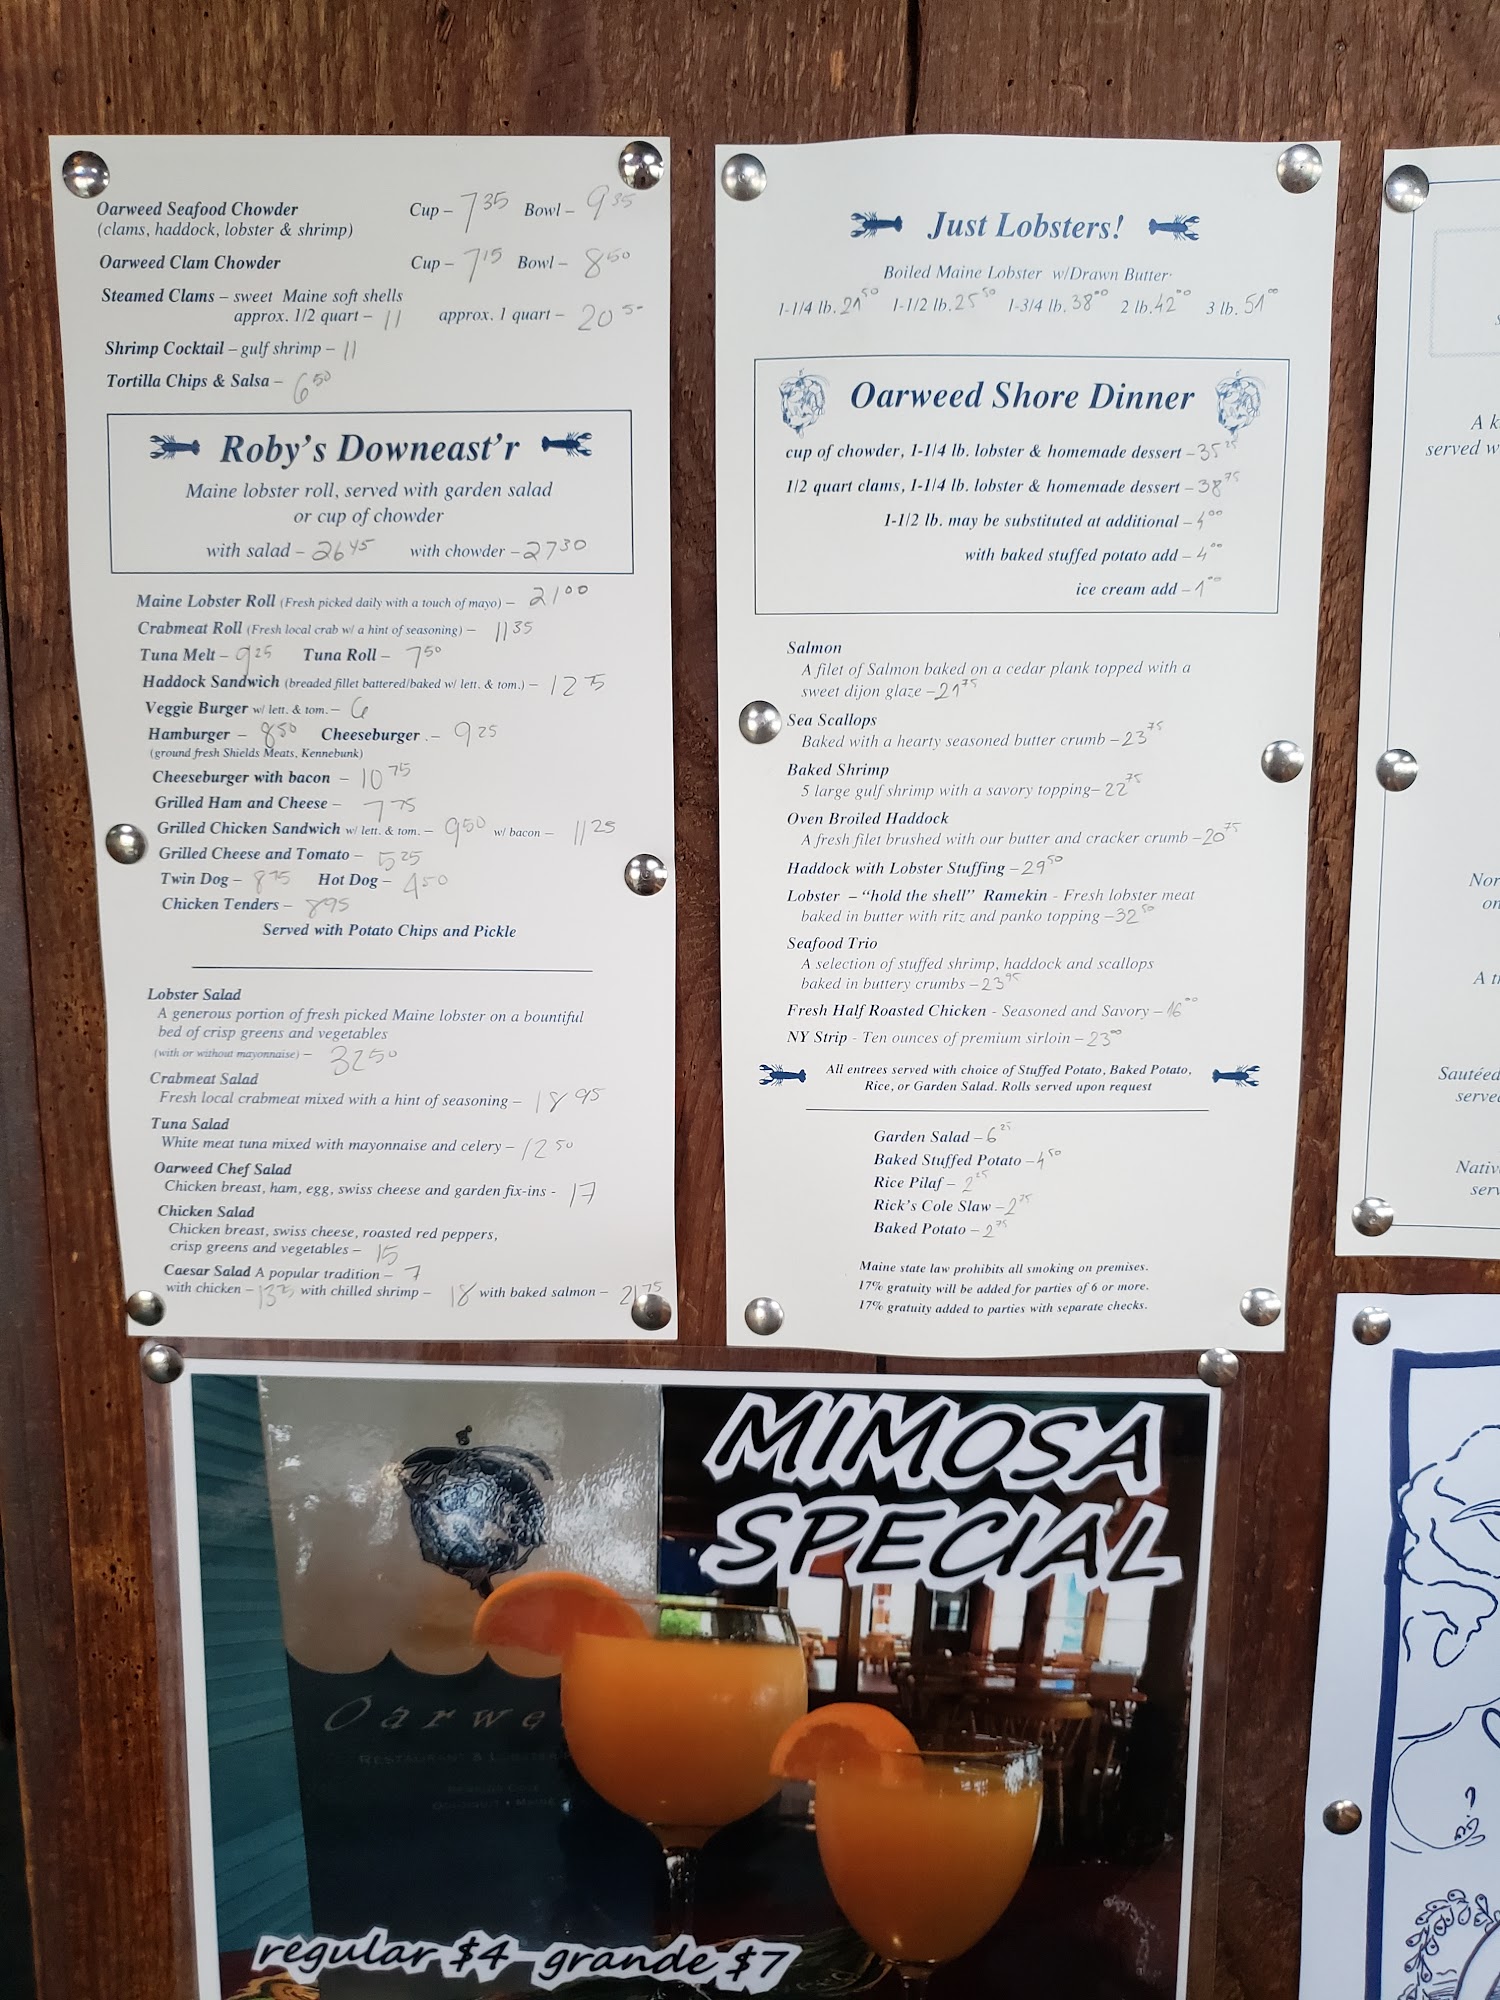 Oarweed Seafood Chowder Cup – 7 35 Bowl – 9 35
(clams, haddock, lobster & shrimp)
Oarweed Clam Chowder Cup – 7 15 Bowl – 8 50
Steamed Clams – sweet Maine soft shells
approx. 1/2 quart – 11 approx. 1 quart – 20 50
Shrimp Cocktail – gulf shrimp – 11
Tortilla Chips & Salsa – 6 50
Roby's Downeast'r
Maine lobster roll, served with garden salad
or cup of chowder
with salad – 26 45 with chowder – 27 30
Maine Lobster Roll (Fresh picked daily with a touch of mayo) – 21 00
Crabmeat Roll (Fresh local crab w/ a hint of seasoning) – 11 35
Tuna Melt – 9 25 Tuna Roll – 7 50
Haddock Sandwich (breaded fillet battered/baked w/ lett. & tom.) – 12 75
Veggie Burger w/ lett. & tom. – 6
Hamburger – 8 50 Cheeseburger . – 9 25
(ground fresh Shields Meats, Kennebunk)
Cheeseburger with bacon – 10 75
Grilled Ham and Cheese – 7 75
Grilled Chicken Sandwich w/ lett. & tom. – 9 50 w/ bacon – 11 25
Grilled Cheese and Tomato – 5 25
Twin Dog – 8 75 Hot Dog – 4 50
Chicken Tenders – 8 95
Served with Potato Chips and Pickle
Lobster Salad
A generous portion of fresh picked Maine lobster on a bountiful
bed of crisp greens and vegetables
(with or without mayonnaise) – 32 50
Crabmeat Salad
Fresh local crabmeat mixed with a hint of seasoning – 18 95
Tuna Salad
White meat tuna mixed with mayonnaise and celery – 12 50
Oarweed Chef Salad
Chicken breast, ham, egg, swiss cheese and garden fix-ins - 17
Chicken Salad
Chicken breast, swiss cheese, roasted red peppers,
crisp greens and vegetables – 15
Caesar Salad A popular tradition – 7
with chicken – 13 25 with chilled shrimp – 18 with baked salmon – 21 75
Just Lobsters!
Boiled Maine Lobster w/Drawn Butter
1-1/4 lb. 21 50 1-1/2 lb. 25 50 1-3/4 lb. 38 00 2 lb. 42 00 3 lb. 51 00
Oarweed Shore Dinner
cup of chowder, 1-1/4 lb. lobster & homemade dessert – 35 25
1/2 quart clams, 1-1/4 lb. lobster & homemade dessert – 38 75
1-1/2 lb. may be substituted at additional – 4 00
with baked stuffed potato add – 4 00
ice cream add – 1 00
Salmon
A filet of Salmon baked on a cedar plank topped with a
sweet dijon glaze – 21 75
Sea Scallops
Baked with a hearty seasoned butter crumb – 23 75
Baked Shrimp
5 large gulf shrimp with a savory topping – 22 75
Oven Broiled Haddock
A fresh filet brushed with our butter and cracker crumb – 20 75
Haddock with Lobster Stuffing – 29 50
Lobster – "hold the shell" Ramekin - Fresh lobster meat
baked in butter with ritz and panko topping – 32 50
Seafood Trio
A selection of stuffed shrimp, haddock and scallops
baked in buttery crumbs – 23 95
Fresh Half Roasted Chicken - Seasoned and Savory – 16 00
NY Strip - Ten ounces of premium sirloin – 23 00
All entrees served with choice of Stuffed Potato, Baked Potato,
Rice, or Garden Salad. Rolls served upon request
Garden Salad – 6 25
Baked Stuffed Potato – 4 50
Rice Pilaf – 2 25
Rick's Cole Slaw – 2 75
Baked Potato – 2 75
Maine state law prohibits all smoking on premises.
17% gratuity will be added for parties of 6 or more.
17% gratuity added to parties with separate checks.
served
A
Sautéed
MIMOSA
SPECIAL
Oarwe
RESTAURANT & LOBSTER
regular $4 grande $7